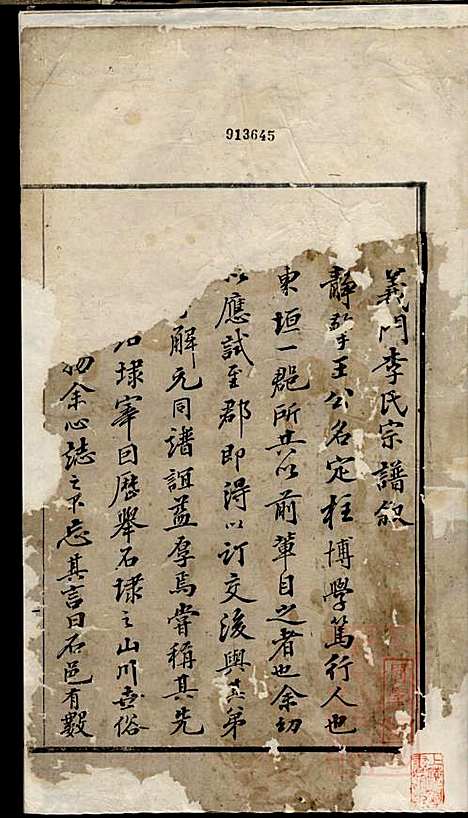 913645
義門李氏宗譜敘
靜
王公名定柱博學篤行人也
東垣一郡所共以前輩目之者也余幼
以應試至郡即得以訂交後與其弟
解元同譜誼益厚焉嘗稱其先
石埭宰回歷舉石埭之山川
俗
余心誌之不忘其言曰石邑有數